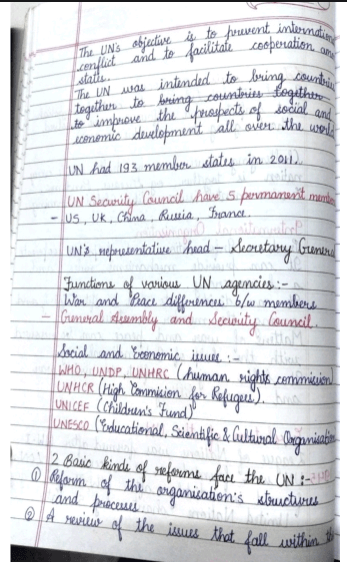 The UN's objective is to prevent internation
conflict and to facilitate cooperation amo
states.
The UN was intended to bring countries
together to bring countries together
to improve the prospects of social and
economic development all over the world
UN had 193 member states in 2011.
UN Security Council have 5 permanent mem
- US, UK, China, Russia, France.
UN's representative head - Secretary Genera
Functions of various UN agencies:-
War and Peace differences b/w members
- General Assembly and Security Council.
Social and Economic issues:-
WHO, UNDP, UNHRC (human rights commission
UNHCR (High Commision for Refugees).
UNICEF (Children's Fund)
UNESCO (Educational, Scientific & Cultural Organisation
2 Basic kinds of reforms face the UN:-
① Reform of the organisation's structures
and processes.
② A review of the issues that fall within the